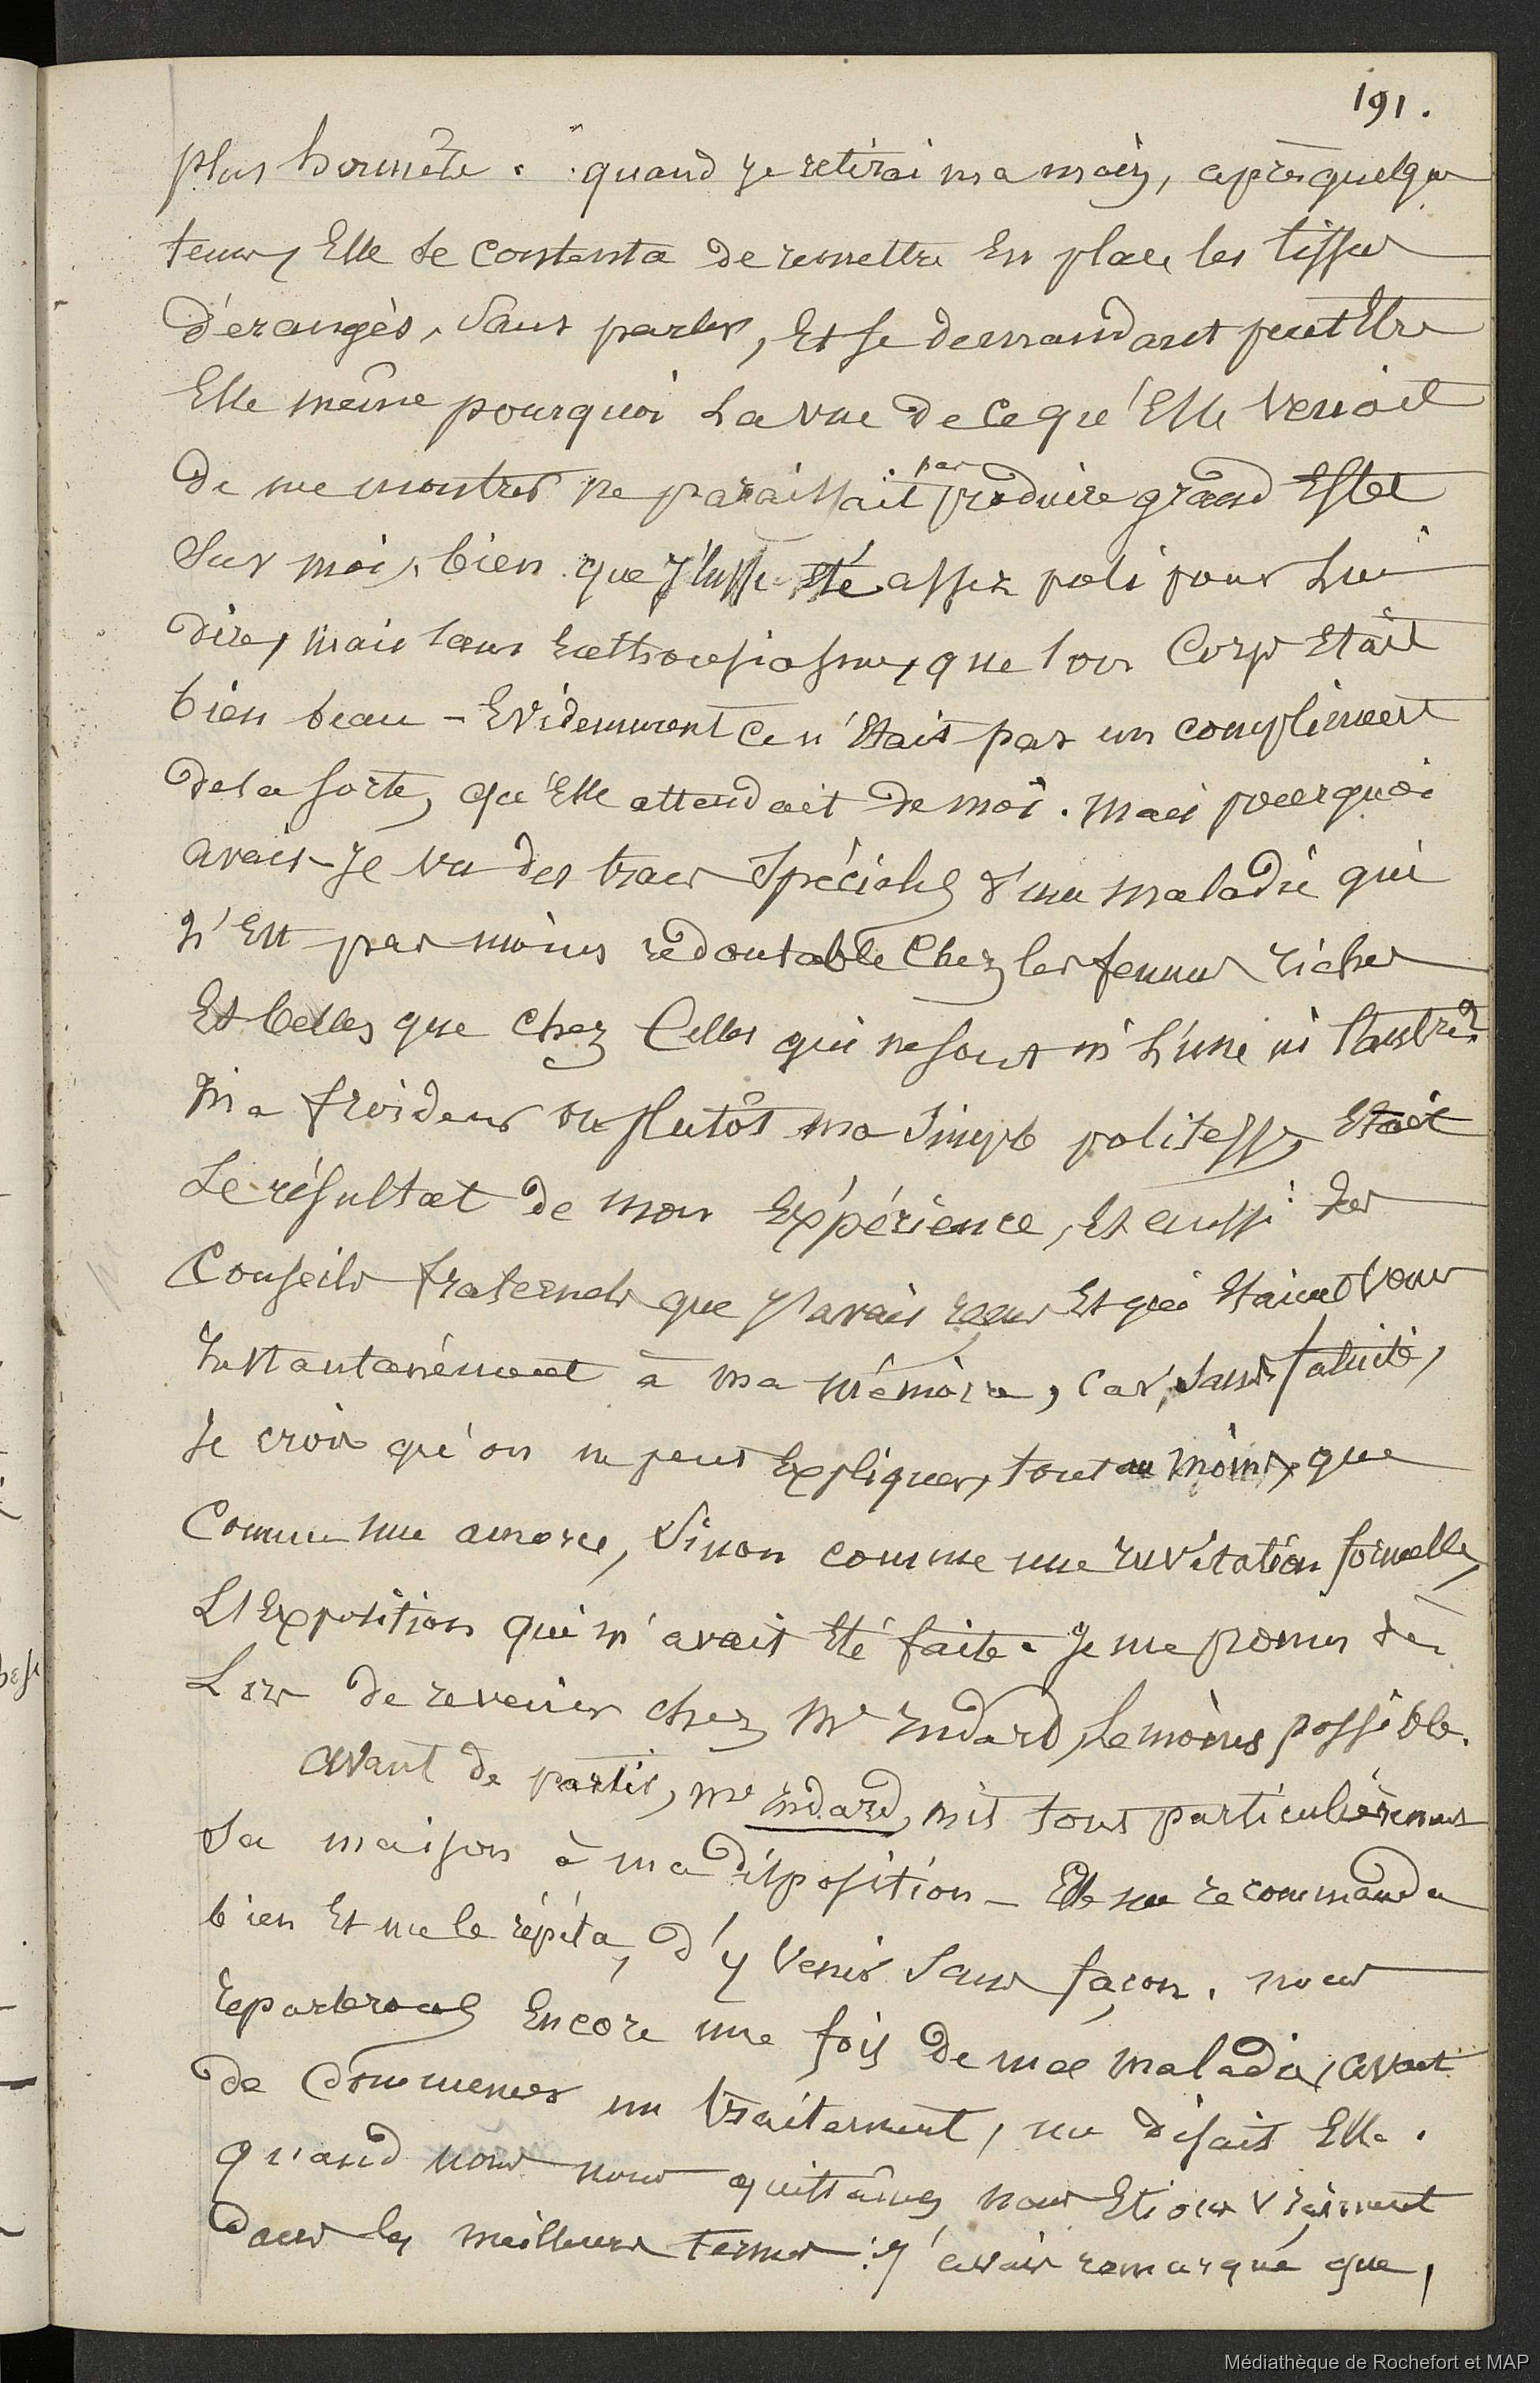 191.
plus honnête. quand je retirai ma main, après quelque
temps, Elle se contenta de remettre En place les tissus
dérangés, sans parler, Et se demandant peut Etre
Elle même pourquoi La vue de ce qu'Elle venait
de me montrer ne paraissait pas produire grand Effet
Sur moi, bien que j'eusse été assez poli pour Lui
dire, mais sans Enthousiasme, que son Corps Etait
bien beau - Evidemment ce n'Etait pas un compliment
de la sorte, qu'Elle attendait de moi. Mais pourquoi
avais-je vu des traces Spéciales d'une maladie qui
n'Est pas moins redoutable Chez les femmes riches
Et belles que chez Celles qui ne sont ni L'une ni l'autre?
Ma froideur ou plutôt ma simple politesse, Etait
Le résultat de mon Expérience, Et aussi des
Conseils fraternels que j'avais reçus Et qui Etaient venus
Instantanément à ma mémoire, car, sans fatuité,
Je crois qu'on ne peut Expliquer, tout au moins, que
Comme une amorce, Sinon comme une invitation formelle,
L'Exposition qui m'avait Eté faite. Je me promis dès
Lors de revenir chez Me Indard, Le moins possible.
avant de partir, Me Indard, mit tout particulièrement
sa maison à ma disposition - Elle me recommanda
bien Et me le répéta, d'y venir Sans façon. nous
reparlerons Encore une fois de ma maladie, avant
de Commencer un traitement, me disait Elle.
quand nous nous quittâmes, nous Etions vraiment
dans les meilleurs termes : j'avais remarqué que,
Médiathèque de Rochefort et MAP